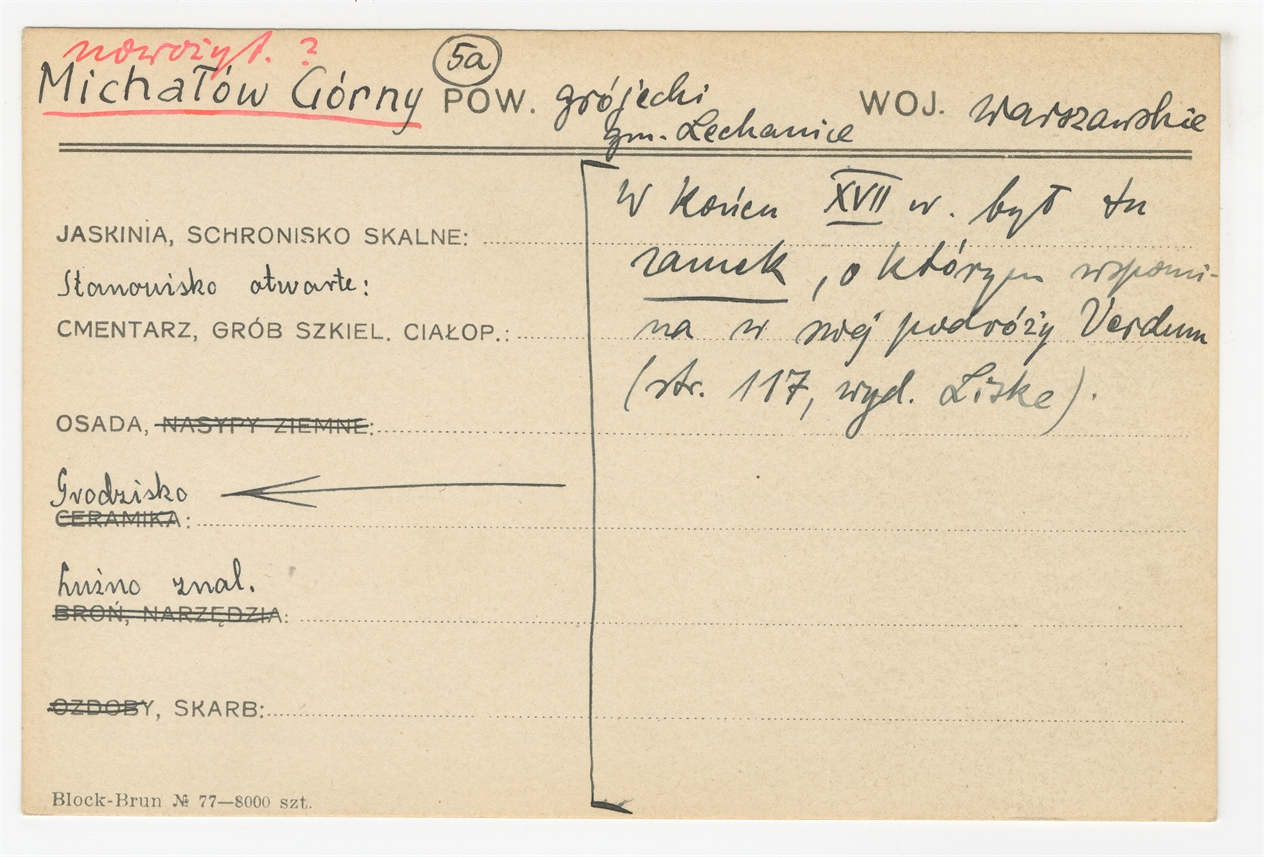 nowożyt. ?
5a
Michałów Górny POW. grójecki WOJ. warszawskie
gm. Lechanice
W końcu XVII w. był tu
JASKINIA, SCHRONISKO SKALNE:
zamek, o którym wspomi-
Stanowisko otwarte:
na w swej podróży Verdum
CMENTARZ, GRÓB SZKIEL. CIAŁOP.:
(str. 117, wyd. Liske).
OSADA, NASYPY ZIEMNE:
Grodzisko
CERAMIKA:
Luźno znal.
BROŃ, NARZĘDZIA:
OZDOBY, SKARB:
Block-Brun № 77—8000 szt.